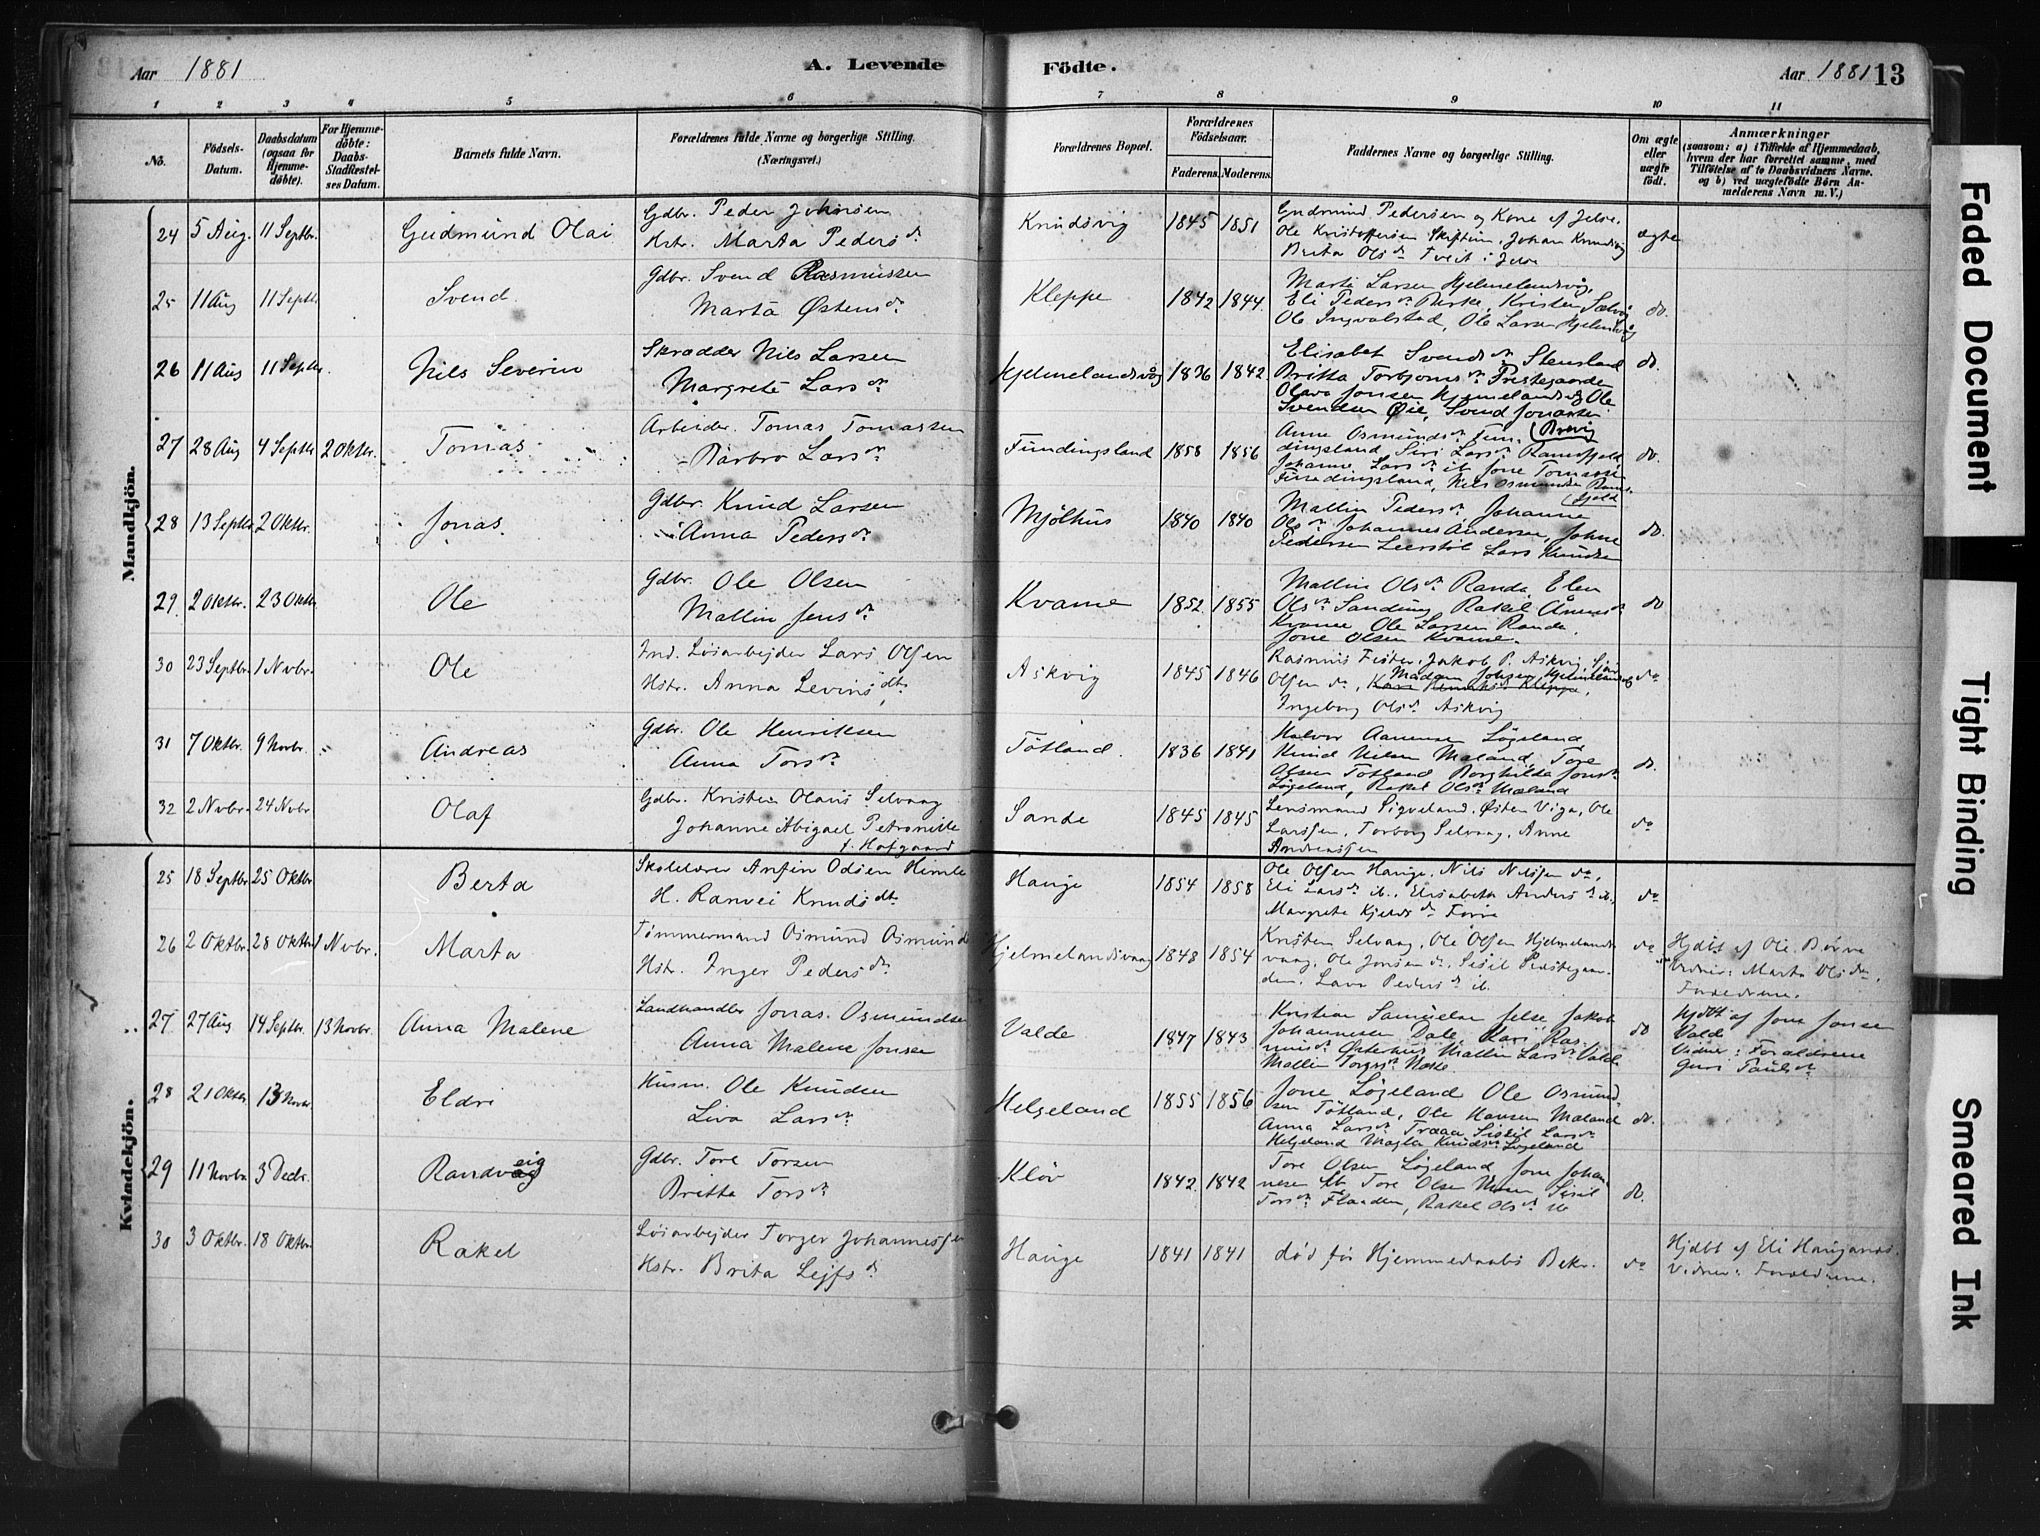 Aar 1881
A. Levende
Födte.
Aar 1881 13
1 2 3 4 5 6 7 8 9 10 11
No.
Födsels-Datum.
Daabsdatum (ogsaa for Hjemmedöbte).
For Hjemmedöbte: Daabs-Stadfæstelses Datum.
Barnets fulde Navn.
Forældrenes fulde Navne og borgerlige Stilling.
(Næringsvei.)
Forældrenes Bopæl.
Forældrenes Födselsaar.
Faderens. Moderens.
Faddernes Navne og borgerlige Stilling.
Om ægte eller uægte födt.
Anmærkninger
(saasom: a) i Tilfælde af Hjemmedaab,
hvem der har forrettet samme, med
Tilföielse af to Daabsvidners Navne.
og b) ved uægtefödte Börn An-
melderens Navn m. V.)
Mandkjön.
24 5 Aug. 11 Septbr. Gudmund Olai
Gdbr. Peder Johnsen
Hstr. Marta Pedersdr
Knudsvig 1845 1851
Gudmund Pedersen og Kone af Jelse.
Ole Kristoffersen Skiftun, Johan Knudsvig
Brita Olsdr Tveit i Jelse
ægte
25 11 Aug 11 Septbr Svend
Gdbr. Svend Rasmussen
Marta Østensdr
Kleppe 1842 1844
Marte Larsen Hjelmelandsvåg,
Eli Pedersdr Birke, Kristen Selvåg
Ole Ingvalstad, Ole Larsen Hjelmsvåg
do.
26 11 Aug 11 Septbr Nils Severin
Skrædder Nils Larsen
Margrete Larsdr
Hjelmelandsvåg 1836 1842
Elisabet Svendsdr Stensland
Britta Torbjornsdr Prestegaarden
Olava Jonsen Hjelmelandsvåg Ole
Svendsen Øie, Svend Jonassen
do.
27 28 Aug 4 Septbr 2 Oktbr. Tomas
Arbeider Tomas Tomassen
Barbro Larsdr
Fundingsland 1858 1856
Anne Osmundsdr Fun- (Brevig
dingsland, Siri Larsdr Ramsfjeld
Johanne Larsdr ib Jone Tomassen
Fundingsland, Nils Osmundsen Rams-
(fjeld
do.
28 13 Septbr 2 Oktbr. Jonas
Gdbr. Knud Larsen
Anna Pedersdr
Mjølhus 1840 1840
Mallin Pedersdr Johanne
Olsdr Johannes Andersen, Johne
Pedersen Leerstøl Lars Knudsen
do.
29 2 Oktbr. 23 Oktbr Ole
Gdbr. Ole Olsen
Mallin Jensdr
Kvame 1852 1855
Mallin Olsdr Randa, Elen
Olsdr Sanding Rakel Åmunsdr
Kvame Ole Larsen Randa,
Jone Olsen Kvame.
do
30 23 Septbr 1 Nvbr. Ole
Ind. Løsarbejder Lars Olsen
Hstr. Anna Levinsdtr.
Askvig 1845 1846
Rasmus Fister, Jakob P. Askvig, Sjur
Olsen do, Madam Johsen Hjelmelandsvåg
Ingeborg Olsdr Askvig
do
31 7 Oktbr. 9 Novbr. Andreas
Gdbr. Ole Henriksen
Anna Torsdr
Tøtland. 1836 1841
Halvor Aamunsen Løgeland
Knud Nilsen Mæland, Tore
Olsen Tøtland Borghilda Jonsdr
Løgeland, Rakel Olsdr Mæland
do.
32 2 Nvbr. 24 Nvbr Olaf
Gdbr. Kristen Olaus Selvaag
Johanne Abigael Petronille
f. Hofgaard
Sande 1845 1845
Lensmand Sigveland, Østen Viga, Ole
Larssen, Torborg Selvaag, Anne
Andreassen
do
Kvindekjön.
25 18 Septbr 25 Oktbr Berta
Skolelærer Anfin Odsen Himle
H. Ranvei Knudsdtr
Hauge 1854 1858
Ole Olsen Hauge, Nils Nilssen do,
Eli Larsdr ib., Elisabeth Andersdr ib.,
Margreta Kjeldsdr Førre
do
26 2 Oktbr. 28 Oktbr 1 Nvbr. Marta
Tømmermand Osmund Osmunds
Hstr. Inger Pedersdr
Hjelmelandsvaag 1848 1854
Kristen Selvaag, Ole Olsen Hjelmelands
vaag, Ole Jonsen do, Sisil Prestegaar-
den, Lava Pedersdr ib.
do
Hjdbt af Ole Børve
Vidner: Marta Olsdr,
Forældrene.
27 27 Aug 14 Septbr. 13 Novbr. Anna Malene
Landhandler Jonas Osmundsen
Anna Malene Jonsen
Valde 1847 1843
Kristian Samuelsen Jelse Jakob
Johannesen Dale, Kari Ras-
musdr Østerhus Mallin Larsdr Valde
Mallin Torgersdr Næse
do
Hjdbt af Jone Jonsen
Valde
Vidner: Forældrene
Guri Paulsdr
28 21 Oktbr. 13 Novbr Eldri
Husm. Ole Knudsen
Liva Larsdr
Helgeland 1855 1856
Jone Løgeland Ole Osmund-
sen Tøtland, Ole Hansen Mæland
Anna Larsdr Traaa Sissil Larsdr
Helgeland Magla Knudsdr Løgeland
do.
29 11 Novbr 3 Decbr. Randveig
Gdbr. Tore Torsen
Britta Torsdr
Kløv 1842 1842
Tore Olsen Løgeland Jone Johan-
nesen ib Tore Olsen Moen Sisil
Torsdr Flanden, Rakel Olsdr ib
do.
30 3 Oktbr. 18 Oktbr. Rakel
Løsarbejder Torger Johannessen
Hstr. Brita Lejfsdr
Hauge 1841 1841
død før Hjemmedaabs Bekr.
do
Hjdbt af Eli Haugane.
Vidner: Forældrene.
Faded Document
Tight Binding
Smeared Ink